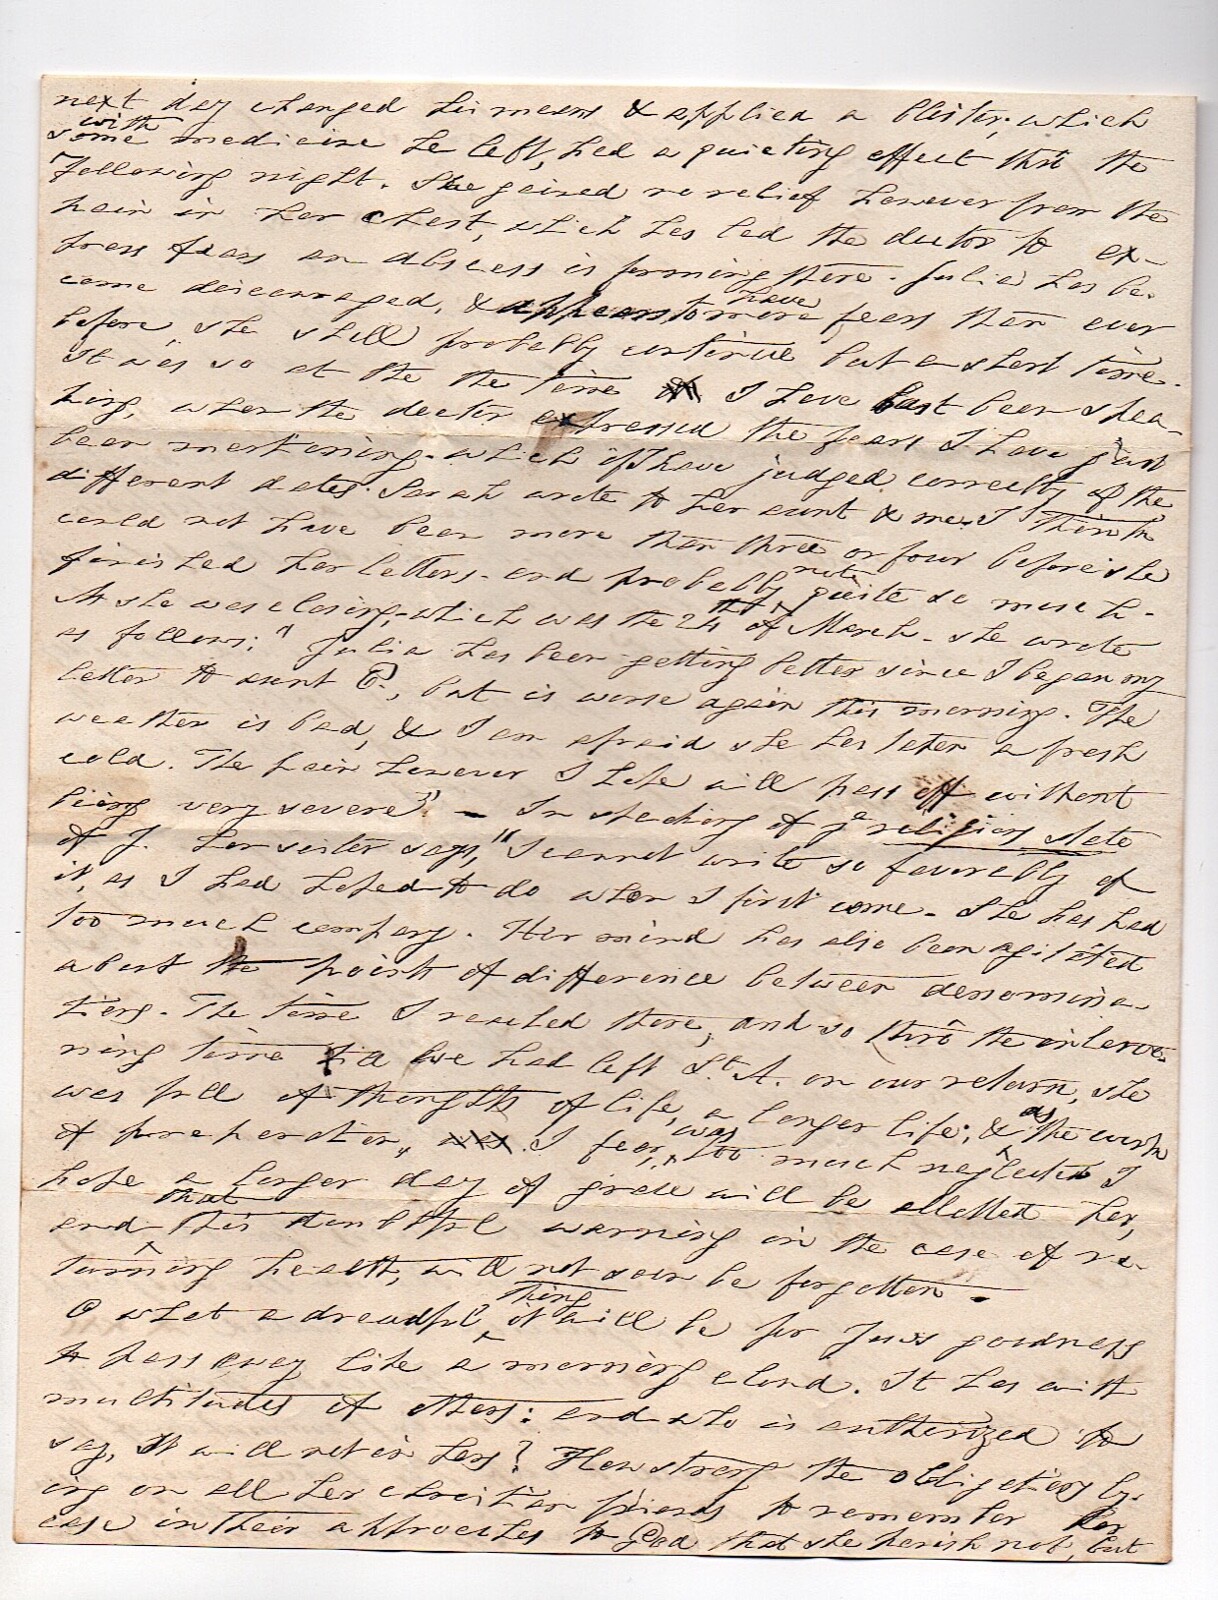 next day changed his means & applied a blister, which
with
some medicine he left, had a quieting effect thro the
following night. She gained no relief however from the
pain in her chest, which has led the doctor to ex-
press fears an abscess is forming there. Julia has be-
come discouraged, & appears to have more fears than ever
before, she shall probably continue but a short time.
It was so at the the time I have last been spea-
king, when the doctor expressed the fears I have just
been mentioning. which if I have judged correctly of the
different dates Sarah wrote to her aunt & me, I think
could not have been more than three or four before she
finished her letters. and probably not quite so much.
As she was closing, which was the 24th of March. she wrote
as follows: "Julia has been getting better since I began my
letter to aunt B., but is worse again this morning. The
weather is bad, & I am afraid she has taken a fresh
cold. The pain however I hope will pass off without
being very severe". — In speaking of ye religious state
of J. her sister says, "I cannot write so favorably of
it, as I had hoped to do when I first came. She has had
too much company. Her mind has also been agitated
about the points of difference between denomina-
tions. The time I reached there, and so thro' the interve-
ning time till we had left St. A. on our return, she
was full of thoughts of life, a longer life; & as the work
of preparation, I fear, was too much neglected I
hope a longer day of grace will be allotted her,
and that this doubtful warning in the case of re-
turning health, will not soon be forgotten. —
O what a dreadful thing it will be for Jus's goodness
to pass away like a morning cloud. It has with
multitudes of others: and who is authorized to
say, it will not in hers? How strong the obligations ly-
ing on all her christian friends to remember her
case in their approaches to God that she perish not, but